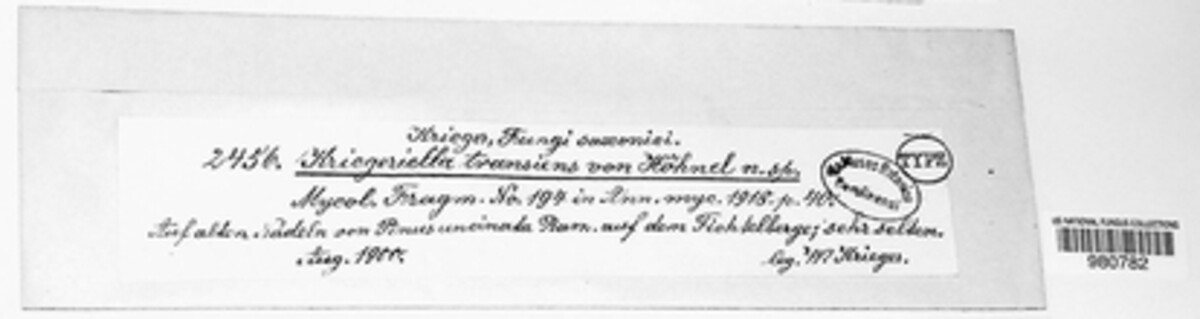 Krieger, Fungi saxonici.
2456. Kriegeriella transiens von Höhnel n. sp.
TYPE
Mycol. Fragm. No. 194 in Ann. myc. 1918. p. 40.
Auf alten Nadeln von Pinus uncinata Ram. auf dem Fichtelberge; sehr selten.
Aug. 1900. leg. W. Krieger.
US NATIONAL FUNGUS COLLECTIONS
980782